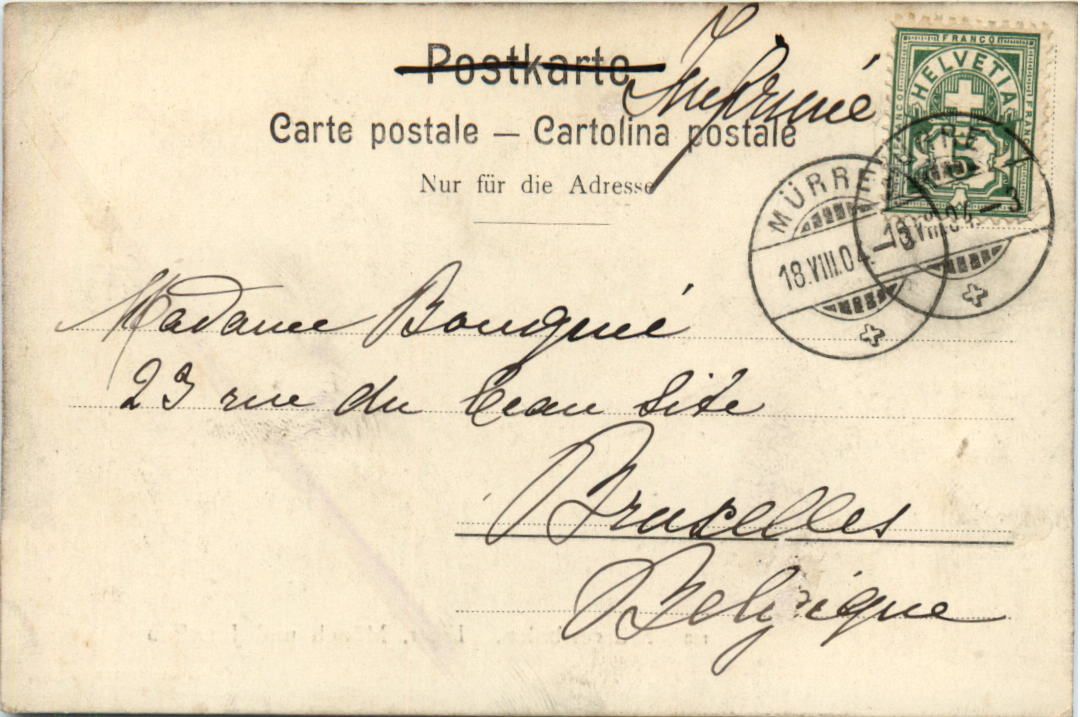 Postkarte
Imprimé
Carte postale — Cartolina postale
Nur für die Adresse
FRANCO
HELVETIA
FRANCO
FRANCO
5
MÜRREN
18.VIII.04.–3
MÜRREN
18.VIII.04.–3
Madame Bouquié
23 rue du beau Site
Bruxelles
Belgique